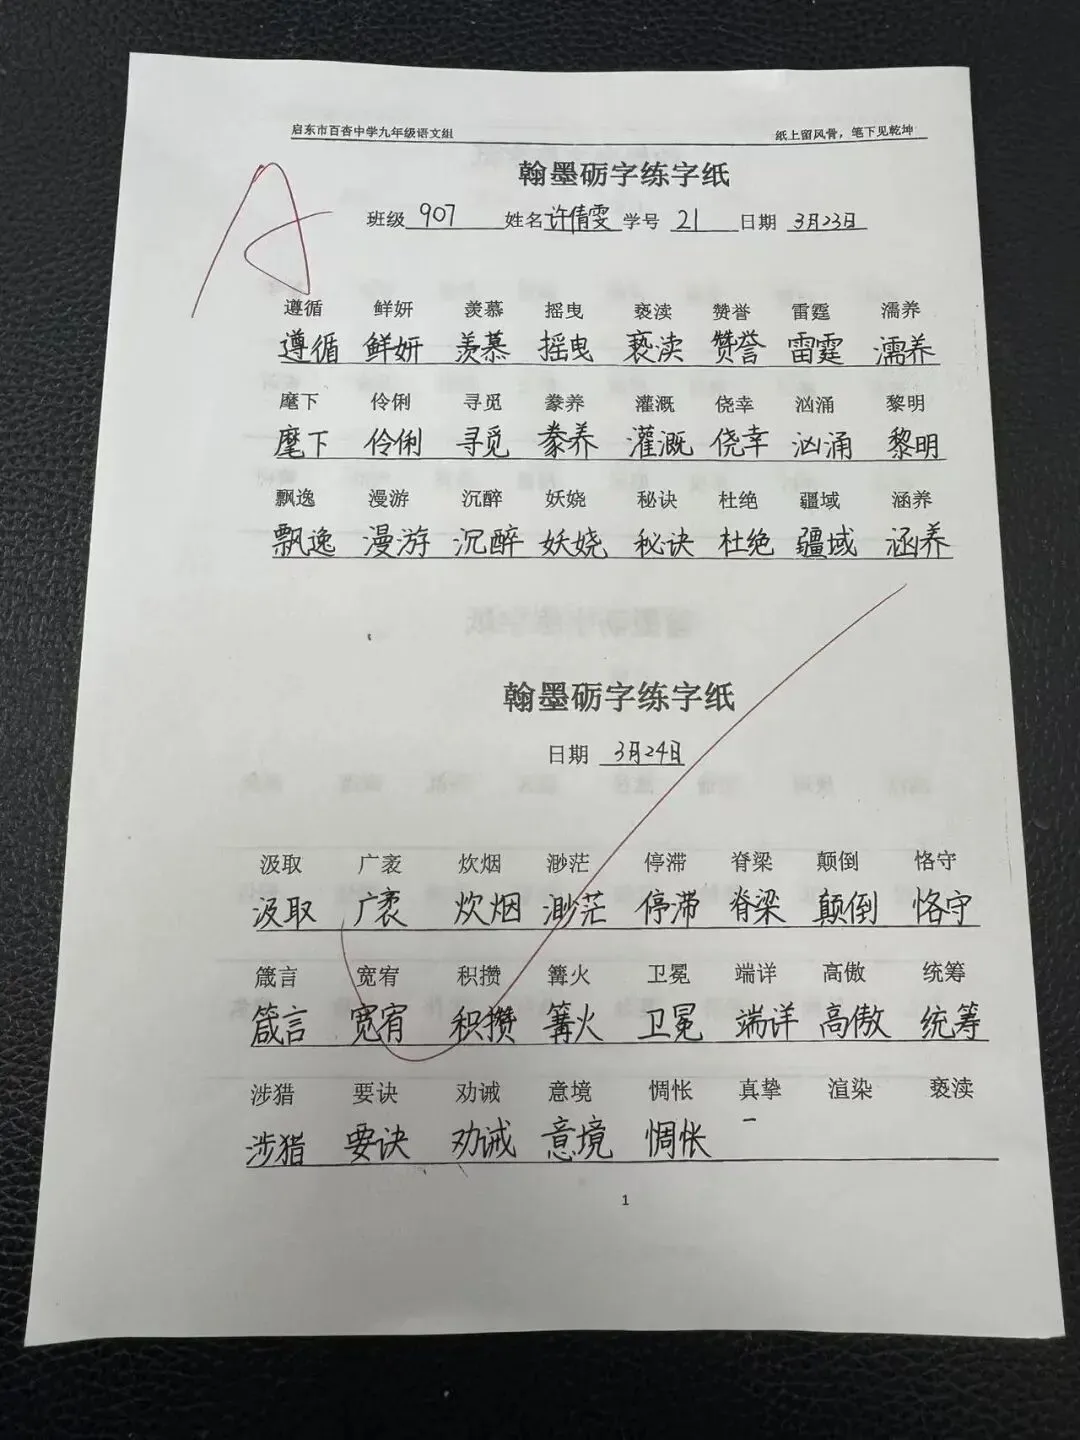 启东市百杏中学九年级语文组 纸上留风骨，笔下见乾坤
A
翰墨砺字练字纸
班级 907 姓名 许倩雯 学号 21 日期 3月23日
遵循 鲜妍 羡慕 摇曳 亵渎 赞誉 雷霆 濡养
遵循 鲜妍 羡慕 摇曳 亵渎 赞誉 雷霆 濡养
麾下 伶俐 寻觅 豢养 灌溉 侥幸 汹涌 黎明
麾下 伶俐 寻觅 豢养 灌溉 侥幸 汹涌 黎明
飘逸 漫游 沉醉 妖娆 秘诀 杜绝 疆域 涵养
飘逸 漫游 沉醉 妖娆 秘诀 杜绝 疆域 涵养
翰墨砺字练字纸
日期 3月24日
汲取 广袤 炊烟 渺茫 停滞 脊梁 颠倒 恪守
汲取 广袤 炊烟 渺茫 停滞 脊梁 颠倒 恪守
箴言 宽宥 积攒 篝火 卫冕 端详 高傲 统筹
箴言 宽宥 积攒 篝火 卫冕 端详 高傲 统筹
涉猎 要诀 劝诫 意境 惆怅 真挚 渲染 亵渎
涉猎 要诀 劝诫 意境 惆怅
1